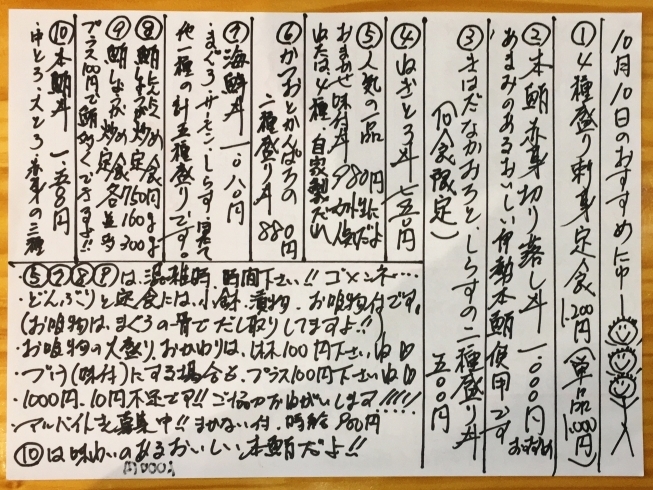 10月10日のおすすめにゅー
① 4種盛り刺身定食 1,200円 (単品1,000円)
② 本鮪赤身切り落し丼 1,000円 おすすめ
あまみのあるおいしい伊勢本鮪使用です
③ きはだなかおちと、しらすの二種盛り丼 五〇〇円
(10食限定)
④ ねぎとろ丼 七五〇円
⑤ 人気の一品 980円
おまかせ味付丼 女性に人気だよ
4種 自家製だれ
⑥ かつおとかんぱちの
二種盛り丼 880円
⑦ 海鮮丼 一、〇八〇円
・まぐろ、サーモン、しらす、
他一種の計五種盛りです。
⑧ 鮪とん炒め定食 750円
⑨ 鮪しょうが炒め定食 各
並 160g
300g
プラス100円で鮪多くできますよ!!
⑩ 本鮪丼
中とろ、大とろ、赤身の三種
⑤⑦⑧⑨は、混雑時、時間下さい!! ゴメンネ…
・どんぶりと定食には、小鉢、漬物、お吸物付です。
(お吸物は、まぐろの骨でだし取りしてますよ!!)
・お吸物の大盛り、おかわりは、100円下さい
・づけ(味付)にする場合も、プラス100円下さい
・1000円、10円不足です!! ご協力お願いします!!!!!
・アルバイトも募集中!! まかない付、時給 900円
⑩は味わいのあるおいしい本鮪だよ!!